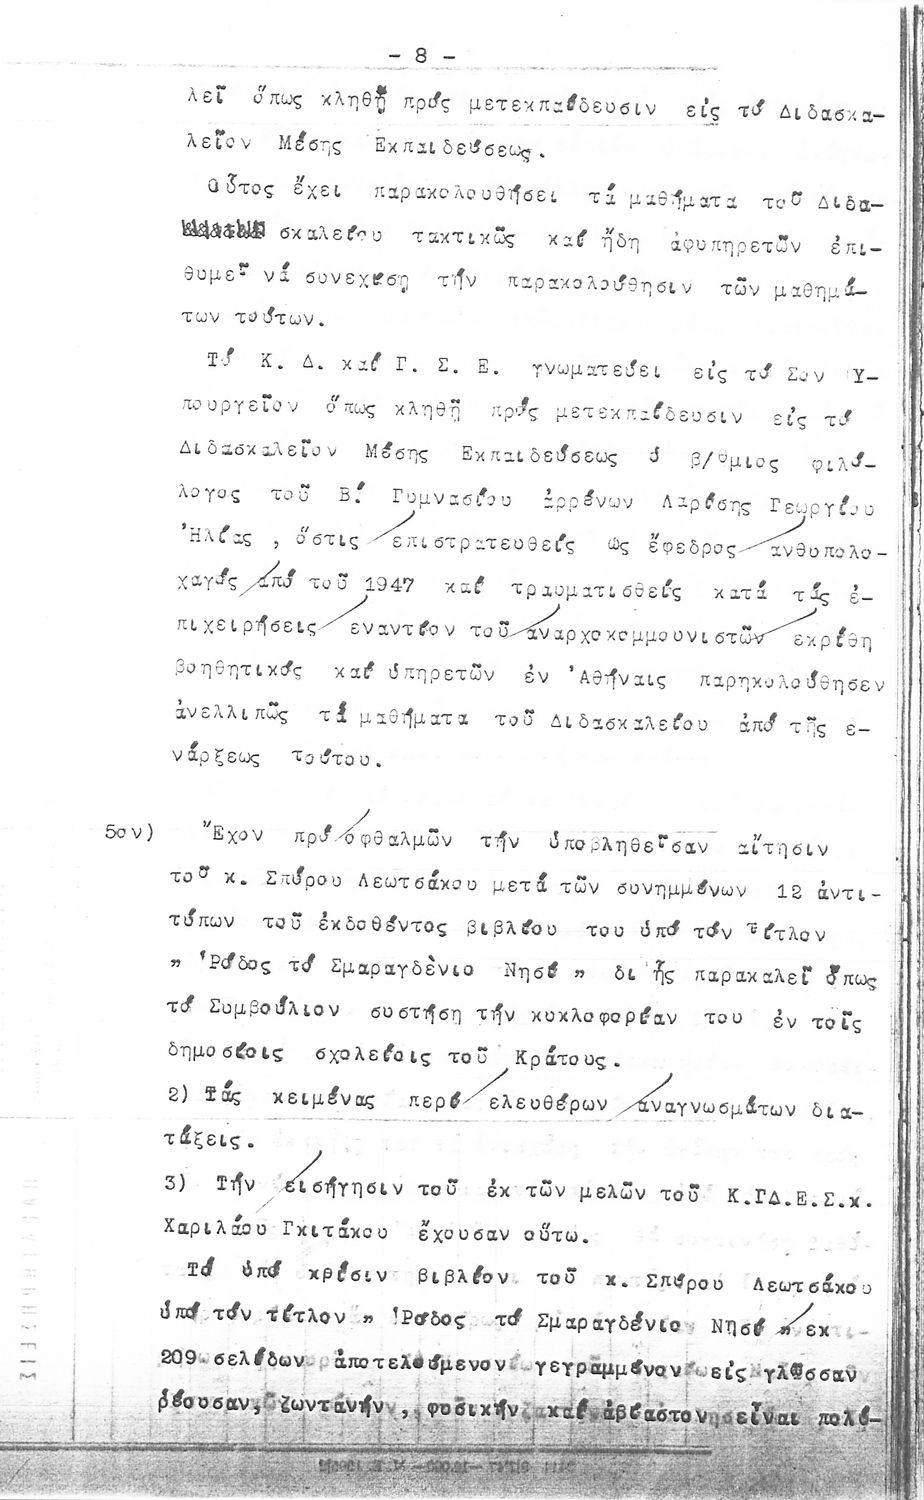 - 8 -
λεῖ ὅπως κληθῇ πρός μετεκπαίδευσιν εἰς τό Διδασκα-
λεῖον Μέσης Ἐκπαιδεύσεως.
Οὗτος ἔχει παρακολουθήσει τά μαθήματα τοῦ Διδα-
σκαλείου τακτικῶς καί ἤδη ἀφυπηρετῶν ἐπι-
θυμεῖ νά συνεχίση τήν παρακολούθησιν τῶν μαθημά-
των τούτων.
Τό Κ. Δ. καί Γ. Σ. Ε. γνωματεύει εἰς τό Σον Ὑ-
πουργεῖον ὅπως κληθῇ πρός μετεκπαίδευσιν εἰς τό
Διδασκαλεῖον Μέσης Ἐκπαιδεύσεως ὁ β/θμιος φιλό-
λογος τοῦ Β. Γυμνασίου ἀρρένων Λαρίσης Γεωργίου
Ἠλίας , ὅστις ἐπιστρατευθείς ὡς ἔφεδρος ἀνθυπολο-
χαγός ἀπό τοῦ 1947 καί τραυματισθείς κατά τάς ἐ-
πιχειρήσεις ἐναντίον τοῦ ἀναρχοκομμουνιστῶν ἐκρίθη
βοηθητικός καί ὑπηρετῶν ἐν Ἀθήναις παρηκολούθησεν
ἀνελλιπῶς τά μαθήματα τοῦ Διδασκαλείου ἀπό τῆς ἐ-
νάρξεως τούτου.
5ον) Ἔχον πρό ὀφθαλμῶν τήν ὑποβληθεῖσαν αἴτησιν
τοῦ κ. Σπύρου Λεωτσάκου μετά τῶν συνημμένων 12 ἀντι-
τύπων τοῦ ἐκδοθέντος βιβλίου του ὑπό τόν τίτλον
" Ῥόδος τό Σμαραγδένιο Νησί " δι ἧς παρακαλεῖ ὅπως
τό Συμβούλιον συστήση τήν κυκλοφορίαν του ἐν τοῖς
δημοσίοις σχολείοις τοῦ Κράτους.
2) Τάς κειμένας περί ἐλευθέρων ἀναγνωσμάτων δια-
τάξεις.
3) Τήν εἰσήγησιν τοῦ ἐκ τῶν μελῶν τοῦ Κ.ΓΔ.Ε.Σ.κ.
Χαριλάου Γκιτάκου ἔχουσαν οὕτω.
Τό ὑπό κρίσιν βιβλίον τοῦ κ. Σπύρου Λεωτσάκου
ὑπό τόν τίτλον " Ῥόδος τό Σμαραγδένιο Νησί " ἐκ
209 σελίδων ἀποτελούμενον γεγραμμένον εἰς γλῶσσαν
ρέουσαν, ζωντανήν , φυσικήν καί ἀβίαστον εἶναι πολύ-